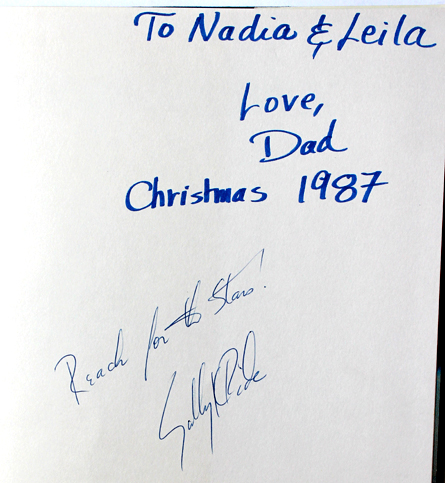 To Nadia & Leila
Love,
Dad
Christmas 1987
Reach for the Stars!
Sally K Ride